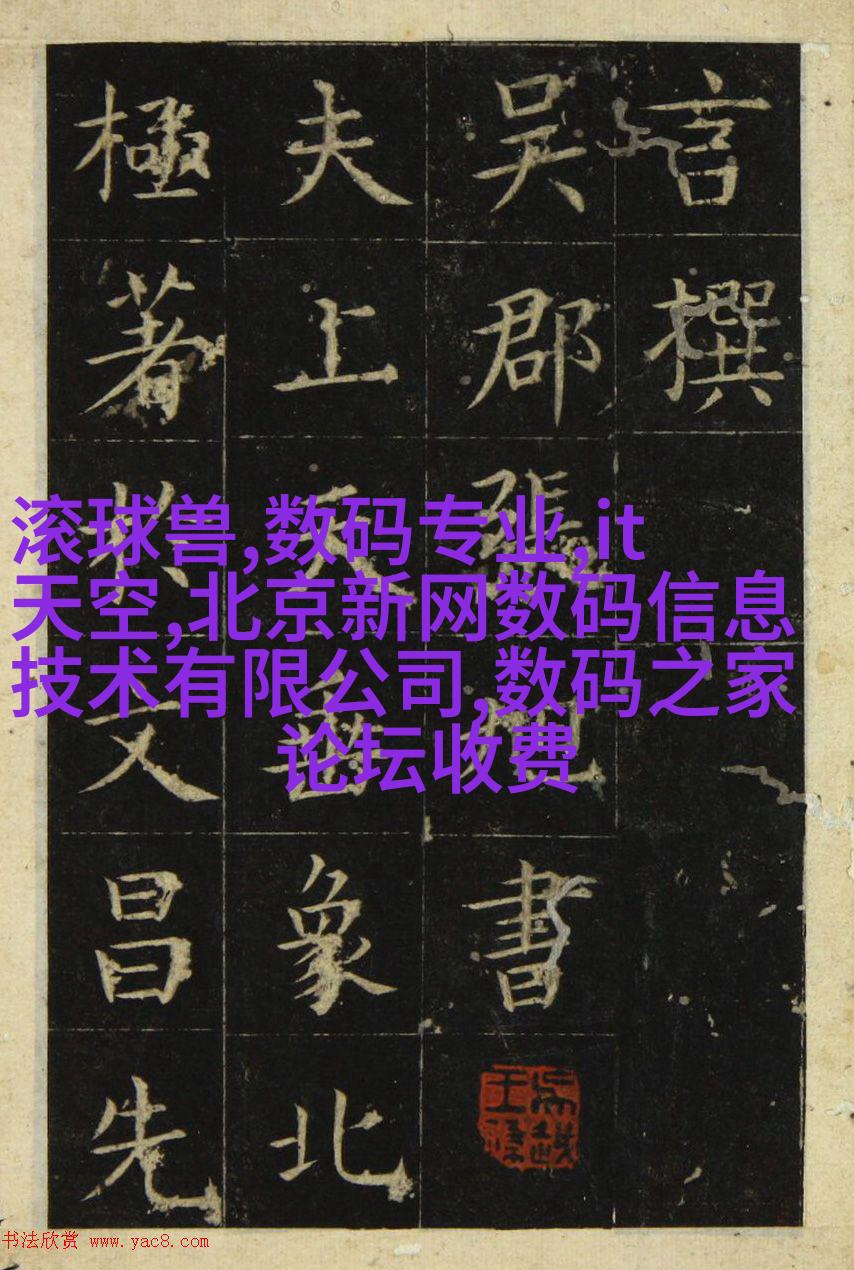 言撰
吴郡張書
夫上天象北
極著文昌先
滚球兽,数码专业,it
天空,北京新网数码信息
技术有限公司,数码之家
论坛收费
书法欣赏 www.yac8.com